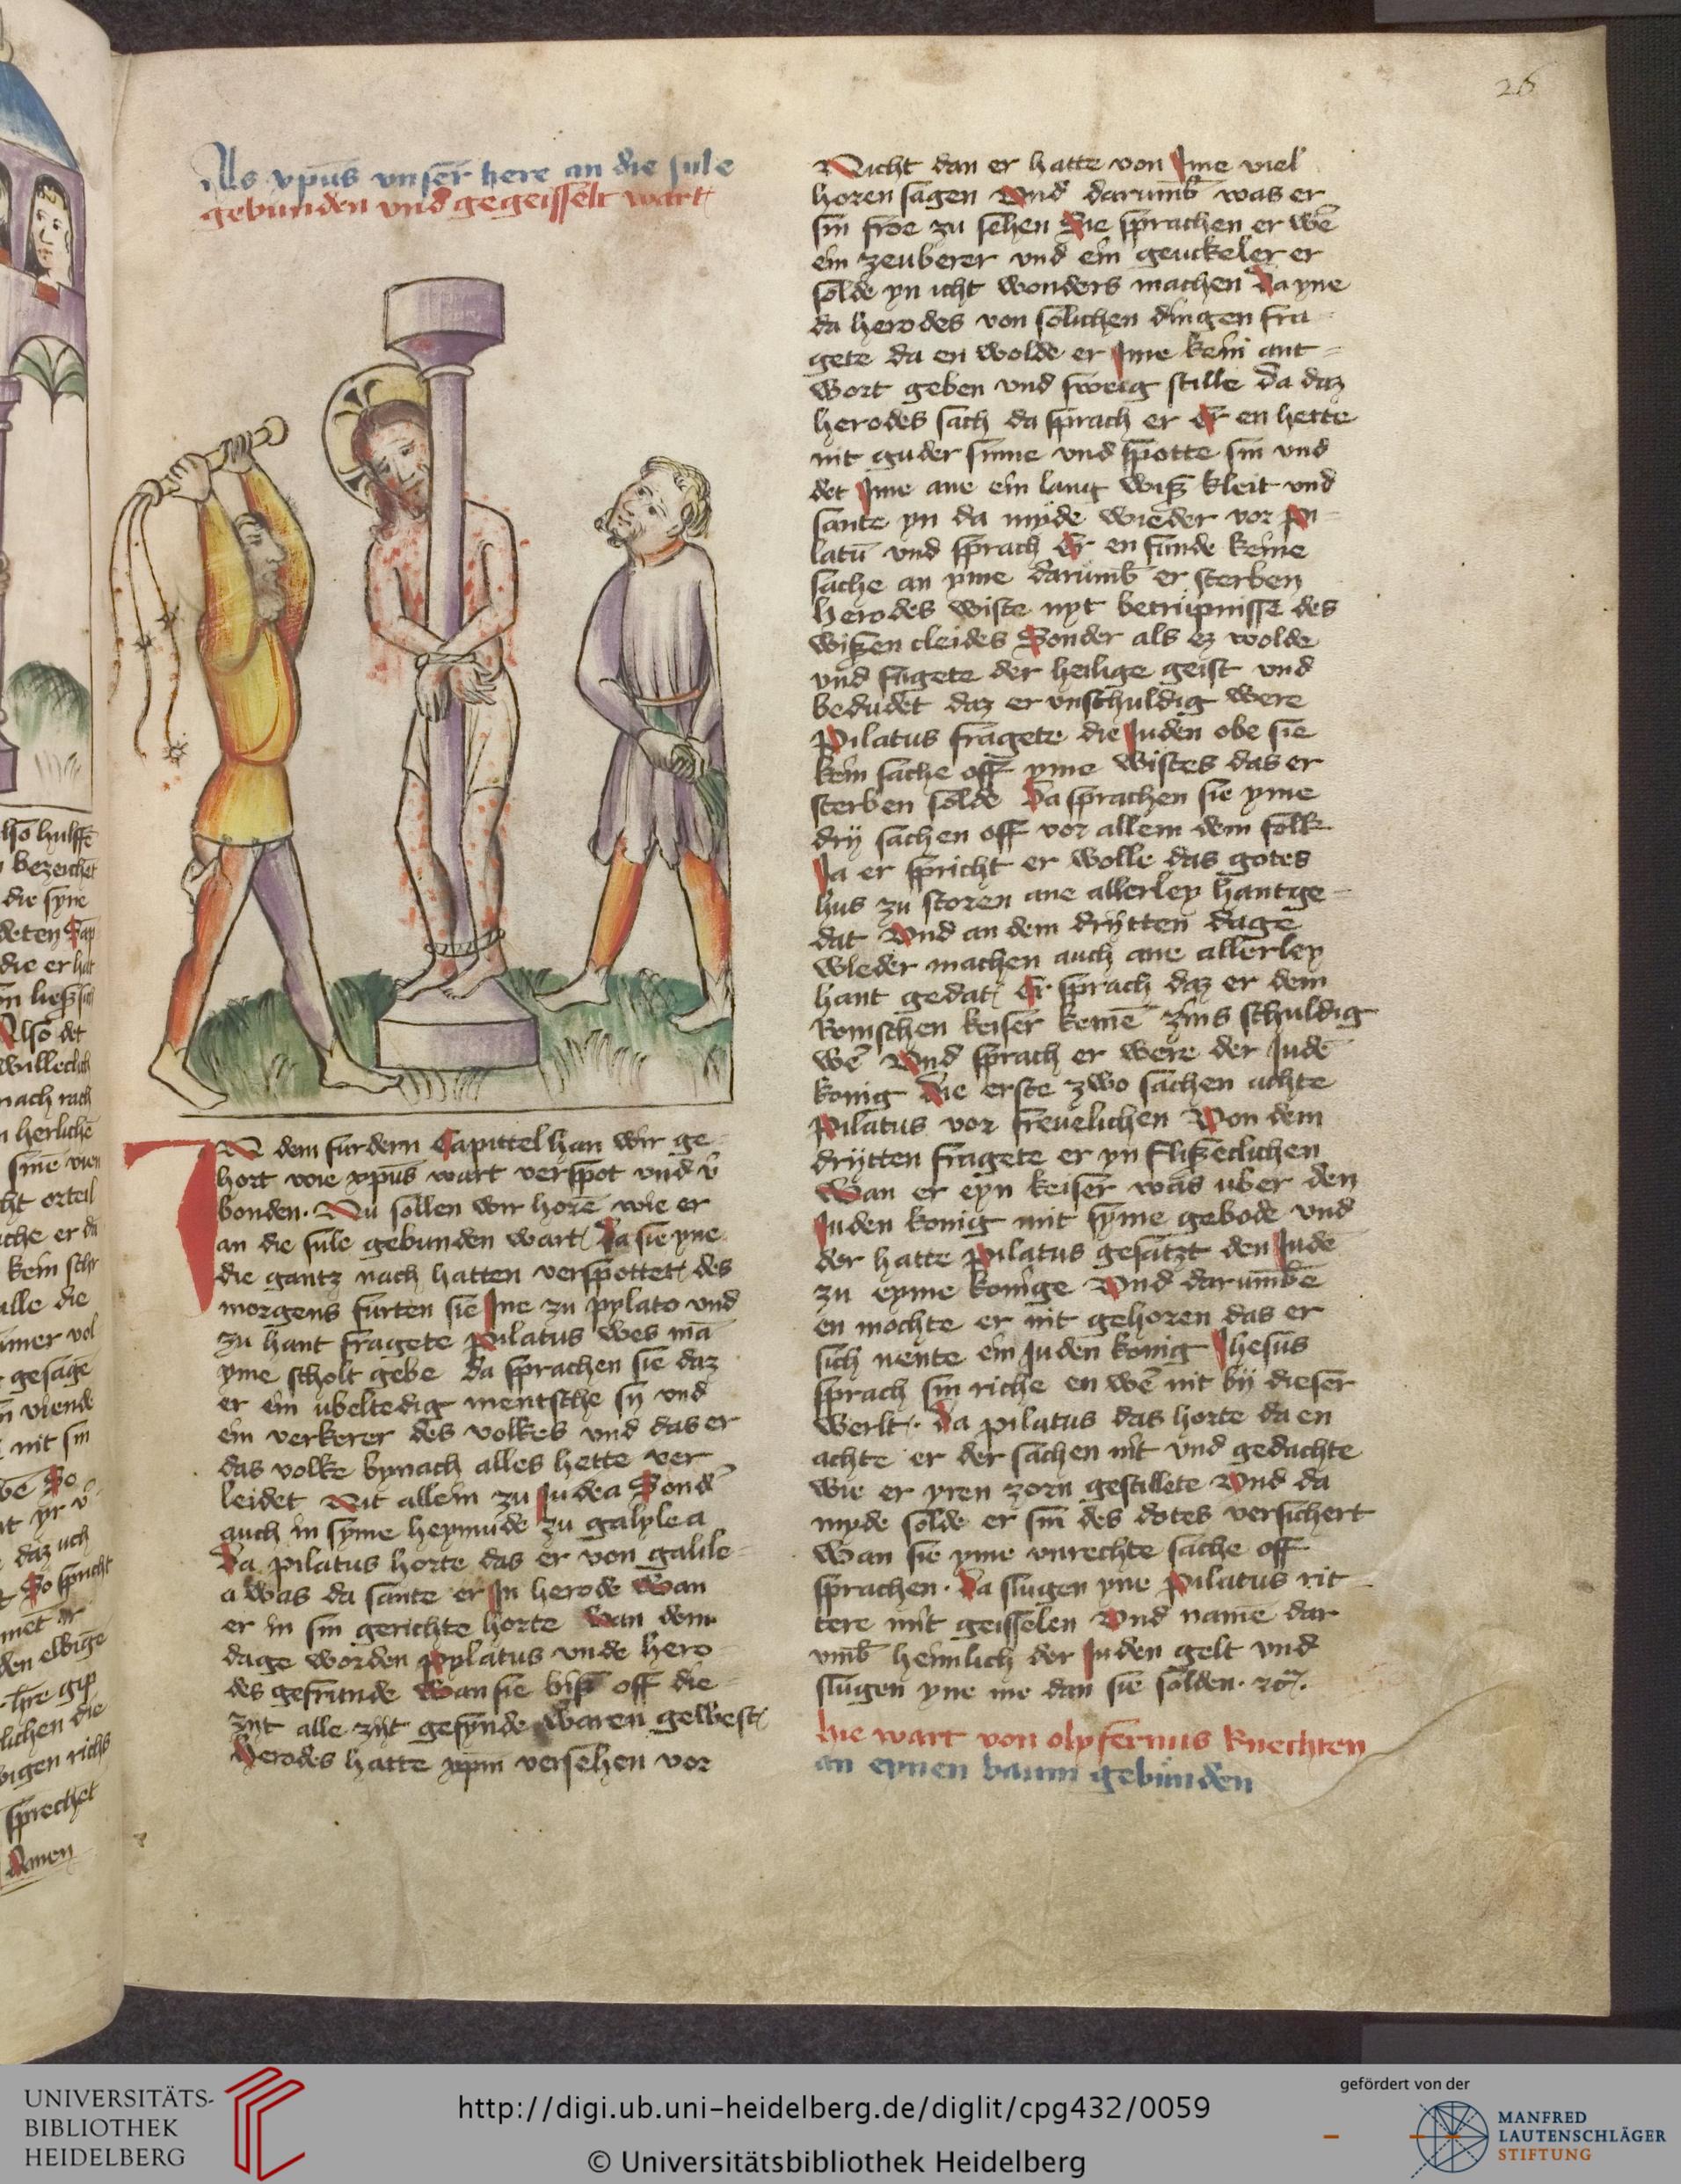 26
Als xpūs vnser here an die sule
gebunden vnd gegeisselt wart
IN dem furdern Capittel han wir ge
hort wie xpūs wart verspot vnd v̄
bonden. Nu sollen wir horē wie er
an die sule gebunden wart Da sie yne
die gantz nach hatten verspottet des
morgens furten sie Jne zu pylato vnd
zu hant fragete pilatus wes mā
yme scholt gebe da sprachen sie daz
er ein ubeltedig mentsche sy vnd
ein verkerer des volkes vnd das er
das volke bynach alles hette ver
leidet Nit allein zu Judea Sond̄
auch in syme heymude zu galylea
Da pilatus horte das er von galile
a was da sante er Jn herode Wan
er in sin gerichte horte wan dem
dage worden pylatus vnde hero
des gefrunde Wan sie biß off die
zijt alle zijt gefynde waren gewest
Herodes hatte xpm̄ versehen vor
Nicht dan er hatte von Jme viel
horen sagen Vnd darumb was er
sin froe zu sehen Sie sprachen er wē
ein zeuberer vnd ein geuckeler er
solde yn icht wonders machen Da yne
da herodes von solichen dingen fra
gete da en wolde er Jme kein ant
wort geben vnd sweig stille Da daz
herodes sach da sprach er Er en hette
nit guder sinne vnd spotte sin vnd
det Jme ane ein lang wiß kleit vnd
sante yn da myde wieder vor Pi
latū vnd sprach Er en funde keine
sache an yme darumb er sterben
herodes wiste nyt betrupnisse des
wißen cleides Sonder als ez wolde
vnd fugete der heilige geist vnd
bedudet daz er vnschuldig were
Pilatus fragete die Juden obe sie
kein sache off yme wistes das er
sterben solde Da sprachen sie yme
dry sachen off vor allem dem folk
Ja er spricht er wolle das gotes
hus zu storen ane allerley hantge
dat Vnd an dem drytten dage
wieder machen auch ane allerley
hant gedat Er sprach daz er dem
Romschen keiser keinē zins schuldig
wē Vnd sprach er were der Judē
konig Die erste zwo sachen achte
Pilatus vor freuelichen Von dem
drytten fragete er yn flißeclichen
Wan er eyn keiser was uber den
Juden konig mit syme gebode vnd
der hatte Pilatus gesatzt den Judē
zu eyme konige Vnd darumbē
en mochte er nit gehoren das er
sich nente ein Juden konig Jhesus
sprach sin riche en wē nit by dieser
werlt. Da pilatus das horte da en
achte er der sachen nit vnd gedachte
wie er yren zorn gestillete Vnd da
myde solde er sin des dotes versichert
Wan sie yme vnrechte sache off
sprachen. Da slugen yne Pilatus rit
tere mit geisselen Vnd namē dar
vmb heimlich der Juden gelt vnd
slugen yne me dan sie solden. rc.
hie wart von olyfernus knechten
an eynen baum gebunden
lso hulffē
bezeichet
die syne
deten
die er hat
Also det
nach rach
herlichē
cht orteil
che er
alle die
ymer vol
gesagē
nit sin
daz uch
So spricht
lichen die
sprechet
Amen
UNIVERSITÄTS-
BIBLIOTHEK
HEIDELBERG
http://digi.ub.uni-heidelberg.de/diglit/cpg432/0059
© Universitätsbibliothek Heidelberg
gefördert von der
MANFRED
LAUTENSCHLÄGER
STIFTUNG